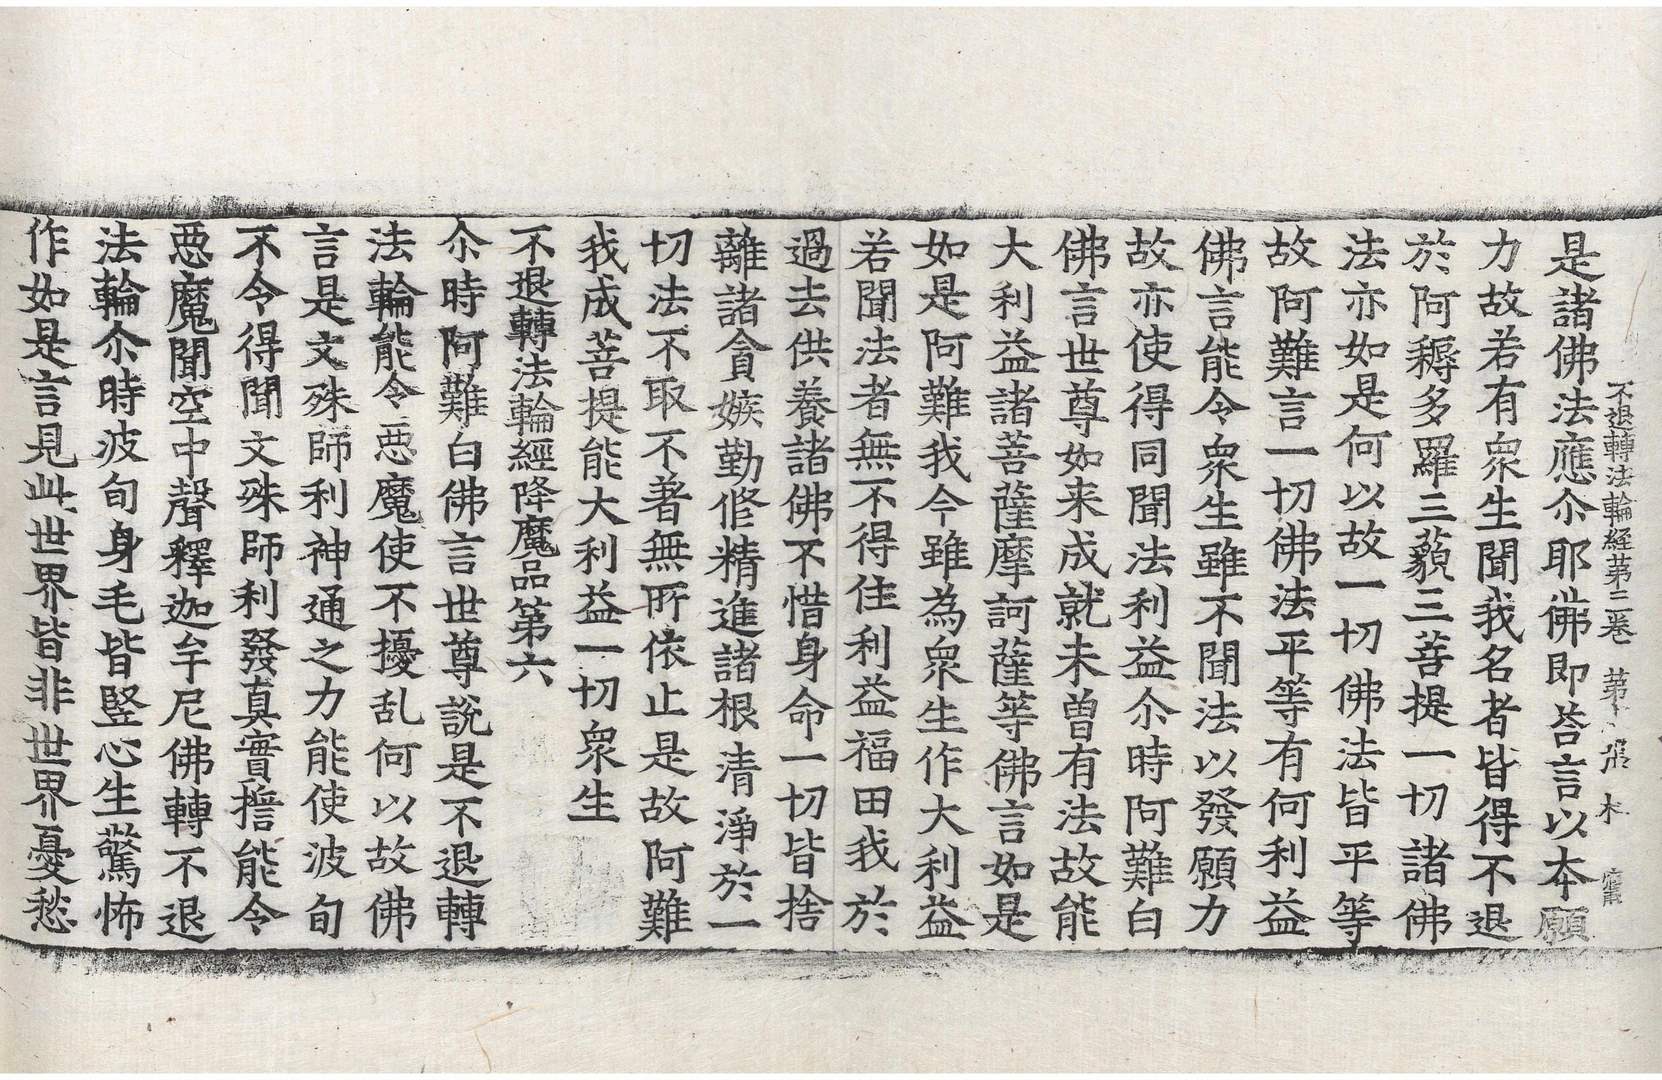 不退轉法輪経苐三卷 苐十 張 木
是諸佛法應尒耶佛即荅言以本願
力故若有衆生聞我名者皆得不退
於阿耨多羅三藐三菩提一切諸佛
法亦如是何以故一切佛法皆平等
故阿難言一切佛法平等有何利益
佛言能令衆生雖不聞法以發願力
故亦使得同聞法利益尒時阿難白
佛言世尊如来成就未曽有法故能
大利益諸菩薩摩訶薩等佛言如是
如是阿難我今雖為衆生作大利益
若聞法者無不得住利益福田我於
過去供養諸佛不惜身命一切皆捨
離諸貪嫉勤修精進諸根清淨於一
切法不取不著無所依止是故阿難
我成菩提能大利益一切衆生
不退轉法輪經降魔品第六
尒時阿難白佛言世尊說是不退轉
法輪能令惡魔使不擾乱何以故佛
言是文殊師利神通之力能使波旬
不令得聞文殊師利發真實擔能令
惡魔聞空中聲釋迦牟尼佛轉不退
法輪尒時波旬身毛皆竪心生驚怖
作如是言見此世界皆非世界憂愁